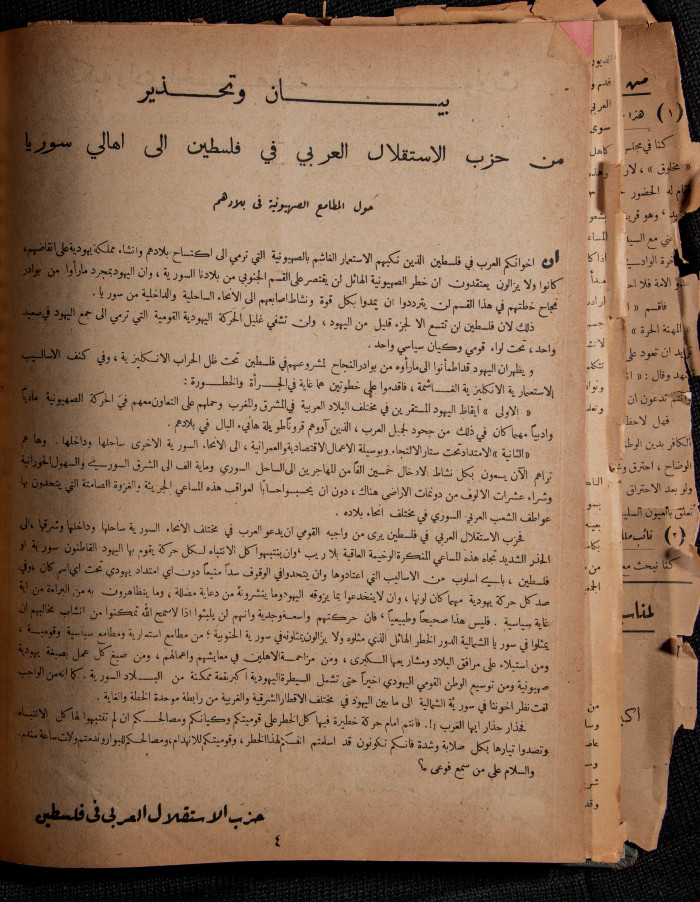 بيـــــــان وتحـــذير
من حزب الاستقلال العربي في فلسطين الى اهالي سوريا
حول المطامع الصهيونية في بلادهم
ان اخوانكم العرب في فلسطين الذين نكبهم الاستعمار الغاشم بالصهيونية التي ترمي الى اكتساح بلادهم وانشاء مملكة يهودية على انقاضهم،
كانوا ولا يزالون يعتقدون ان خطر الصهيونية الهائل لن يقتصر على القسم الجنوبي من بلادنا السورية، وان اليهود بمجرد ما رأوا من بوادر
نجاح خطتهم في هذا القسم لن يترددوا ان يمدوا بكل قوة ونشاط اصابعهم الى الانحاء الساحلية والداخلية من سوريا.
ذلك لان فلسطين لن تتسع الا لجزء قليل من اليهود، ولن تشفي غليل الحركة اليهودية القومية التي ترمي الى جمع اليهود في صعيد
واحد، تحت لواء قومي وكيان سياسي واحد.
ويظهران اليهود قد اطمأنوا الى مارأوه من بوادر النجاح لمشروعهم في فلسطين تحت ظل الحراب الانكليزية، وفي كنف الاساليب
الاستعمارية الانكليزية الغـاشمة، فاقدموا على خطوتين هما غاية في الجـرأة والخطـورة:
« الاولى » ايقاظ اليهود المستقرين في مختلف البلاد العربية في المشرق والمغرب وحملهم على التعاون معهم في الحركة الصهيونية مادياً
وادبياً مهما كان في ذلك من جحود لجميل العرب، الذين آووهم قرونا طويلة هانئي البال في بلادهم.
«الثانية» الامتداد تحت ستار الالتجاء وبوسيلة الاعمال الاقتصادية والعمرانية، الى الانحاء السورية الاخرى ساحلها وداخلها. وها هم
تراهم الآن يسعون بكل نشاط لادخال خمسين الفا من المهاجرين الى الساحل السوري وماية الف الى الشرق السوري والسهول الحورانية
وشراء عشرات الالوف من دونمات الاراضي هناك، دون ان يحسبوا حسابا لعواقب هذه المساعي الجريئة والغزوة الصامتة التي يتحدون بها
عواطف الشعب العربي السوري في مختلف انحاء بلاده.
فحزب الاستقلال العربي في فلسطين يرى من واجبه القومي ان يدعو العرب في مختلف الانحاء السورية ساحلها وداخلها وشرقها، الى
الحذر الشديد تجاه هذه المساعي المنكرة الوخيمة العاقبة بلا ريب، وان ينتبهوا كل الانتباه لكل حركة يقوم بها اليهود القاطنون سورية او
فلسطين، باي اسلوب من الاساليب التي اعتادوها وان يتحدوا في الوقوف سداً منيعاً دون اي امتداد يهودي تحت اي اسم كان، وفي
صد كل حركة يهودية مهما كان لونها، وان لا ينخدعوا بما يزوقه اليهود وما ينشرونة من دعاية مضللة، وما يتظاهرون به من البراءة من اية
غاية سياسية. فليس هذا صحيحاً وطبيعياً، فان حركتهم واسعة وجدية وانهم لن يلبثوا اذا لاسمح الله تمكنوا من انشاب مخاليبهم ان
يمثلوا في سوريا الشمالية الدور الخطر الهائل الذي مثلوه ولا يزالون يمثلونه في سورية الجنوبية، من مطامع استعمارية ومطامع سياسية وقومية،
ومن استيلاء على مرافق البلاد ومشاريعها الكبرى، ومن مزاحمة الاهلين في معايشهم واعمالهم، ومن صبغ كل عمل بصبغة يهودية
صهيونية ومن توسيع الوطن القومي اليهودي اخيراً حتى تشمل السيطرة اليهودية اكبر بقعة ممكنة من البـلاد السورية. كما انه من الواجب
لفت نظر اخوتنا في سوريّة الشمالية الى ما بين اليهود في مختلف الاقطار الشرقية والغربية من رابطة موحدة الخطة والغاية.
فحذار حذار ايها العرب !!. فانتم امام حركة خطيرة فيها كل الخطر على قوميتكم وكيانكم ومصالحـكم ان لم تنتبهوا لها كل الانتبـاه
وتصدوا تيارها بكل صلابة وشدة فانكم تكونون قد اسلمتم انفسكم لهذا الخطر، وقوميتكم للانهدام، ومصالحكم للبوار وندمتم ولات ساعة مندم.
والسلام على من سمع فوعى ؟
حزب الاستقلال العربي في فلسطين
٤